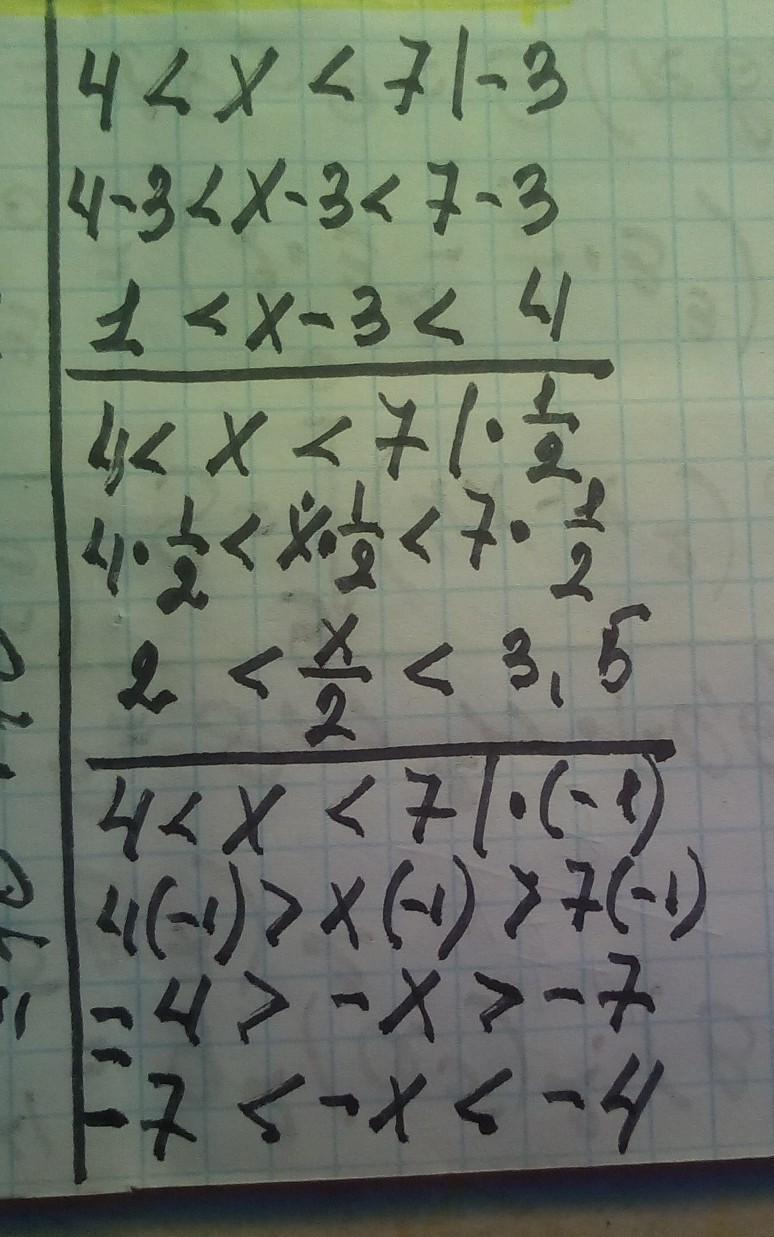 4 < x < 7 | - 3
4 - 3 < x - 3 < 7 - 3
1 < x - 3 < 4
4 < x < 7 | · 1/2
4 · 1/2 < x · 1/2 < 7 · 1/2
2 < x/2 < 3,5
4 < x < 7 | · (-1)
4(-1) > x(-1) > 7(-1)
-4 > -x > -7
-7 < -x < -4